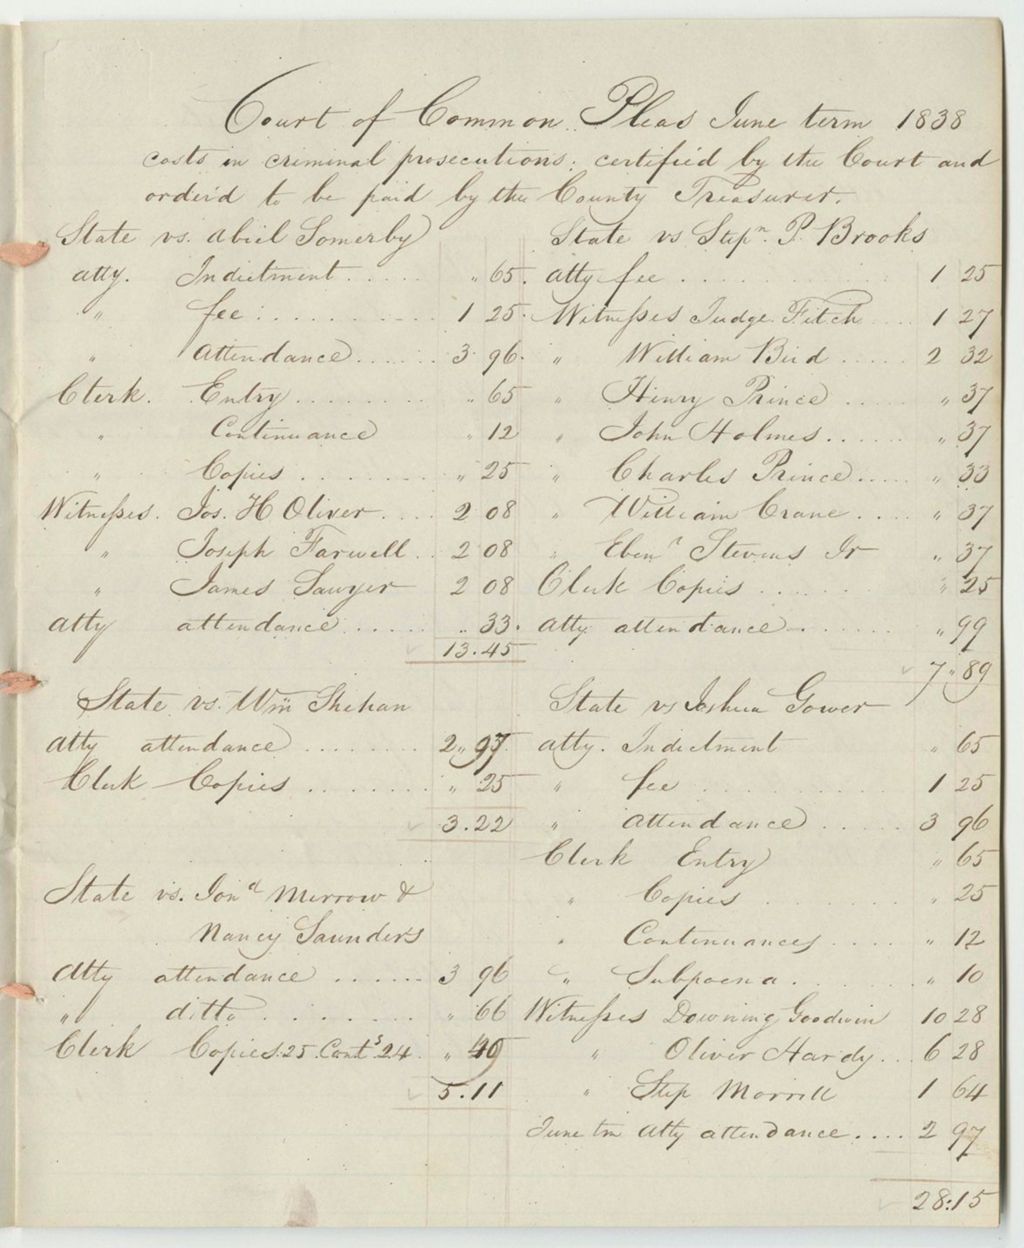 Court of Common Pleas June term 1838
costs in criminal prosecutions. certified by the Court and
orderd to be paid by the County Treasurer.
State vs. Abiel Somerby
atty. Indictment ..... " 65.
" fee .......... 1 25.
" attendance ..... 3 96.
Clerk. Entry ........ " 65
" Continuance " 12
" Copies ........ " 25
Witnesses. Jos. H Oliver .... 2 08
" Joseph Farwell .. 2 08
" James Sawyer 2 08
atty attendance ..... " 33.
13.45
State vs. Wm Shehan
atty attendance ........ 2 " 97
Clerk Copies ....... " 25
3.22
State vs. Jona Merrow &
Nancy Saunders
Atty attendance ...... 3 96
" ditto ........ " 66
Clerk Copies.25. Conts 24 . " 49
5.11
State vs Stepn. P. Brooks
atty fee .......... 1 25
Witnesses Judge Fitch .... 1 27
" William Bird .... 2 32
" Henry Prince ..... " 37
" John Holmes ...... " 37
" Charles Prince ..... " 33
" William Crane .... " 37
" Ebenr Stevens Jr " 37
Clerk Copies ....... " 25
atty attendance ....... " 99
7 " 89
State vs Joshua Gower
atty. Indictment " 65
" fee ......... 1 25
" attendance ..... 3 96
Clerk Entry " 65
" Copies ........ " 25
" Continuances .... " 12
" Subpoena ....... " 10
Witnesses Downing Goodwin 10 28
" Oliver Hardy ... 6 28
" Step Morrill 1 64
June tm Atty attendance .... 2 97
28:15